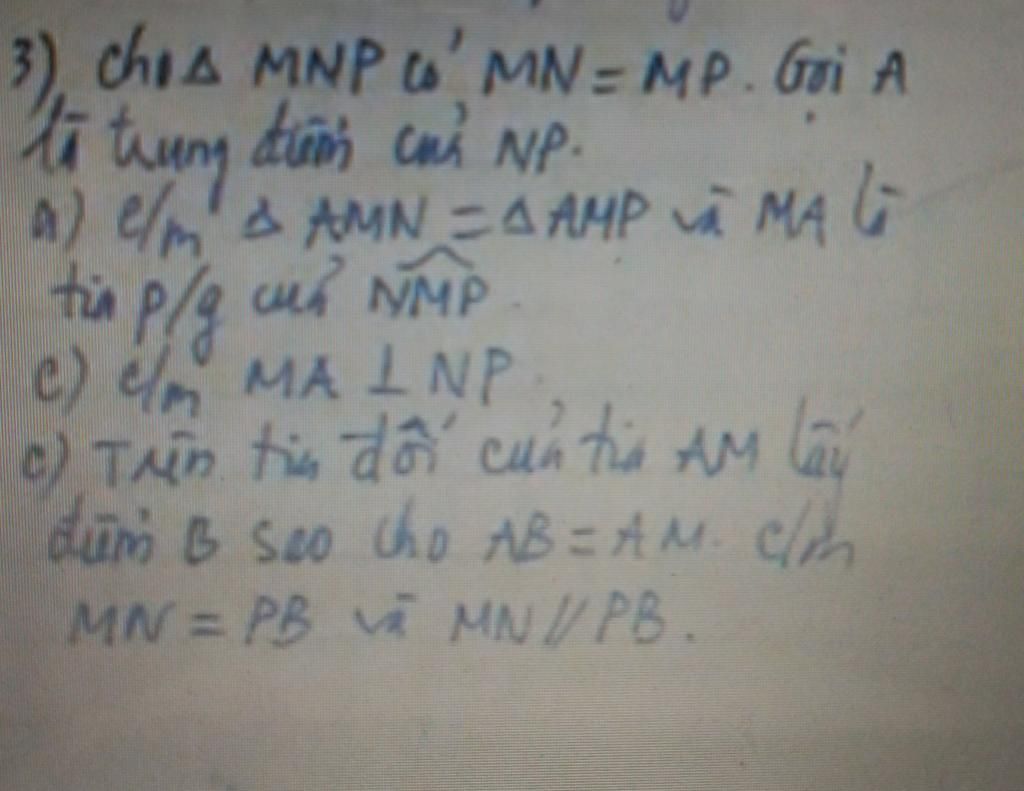 3) cho Δ MNP có MN = MP. Gọi A
là trung điểm của NP.
a) c/m Δ AMN = Δ AMP và MA là
tia p/g của NMP.
c) c/m MA ⊥ NP.
c) Trên tia đối của tia AM lấy
điểm B sao cho AB = AM. c/m
MN = PB và MN // PB.